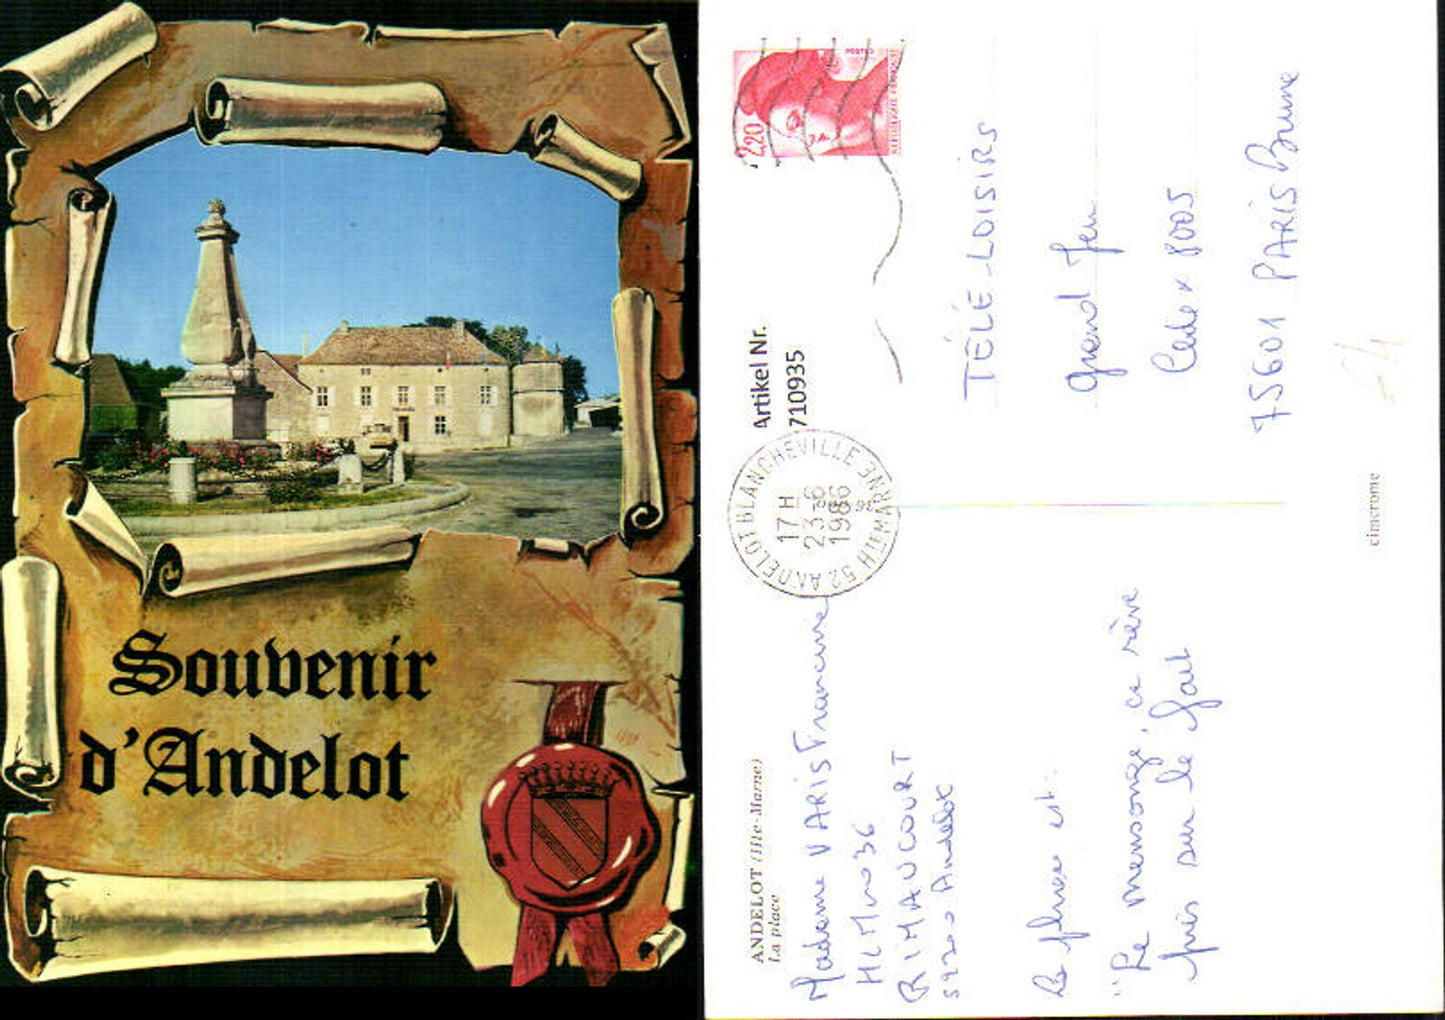 Souvenir
d'Andelot
2,20
POSTES
REPUBLIQUE FRANÇAISE
Artikel Nr.
710935
ANDELOT BLANCHEVILLE
52 HTE MARNE
17 H
23-6
1986
TÉLÉ-LOISIRS
grand Jeu
Cedex 8005
75601 PARIS Brune
ANDELOT (Hte-Marne)
La place
Madame VARIS Francine
HLM no 36
RIMAUCOURT
52200 Andelot
La phrase est:
"Le mensonge, ce rêve
pris sur le fait
cimerome